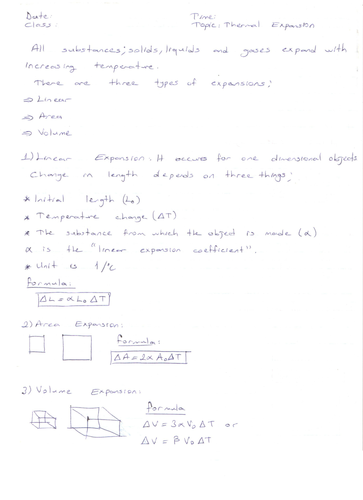 Date: Time:
Class: Topic: Thermal Expansion
All substances; solids, liquids and gases expand with
increasing temperature.
There are three types of expansions;
⇒ Linear
⇒ Area
⇒ Volume
1) Linear Expansion: It occures for one dimensional objects
Change in length depends on three things;
* Initial length (L₀)
* Temperature change (ΔT)
* The substance from which the object is made (α)
α is the "linear expansion coefficient".
* Unit is 1/°C
Formula:
ΔL = α L₀ ΔT
2) Area Expansion:
Formula:
ΔA = 2α A₀ ΔT
3) Volume Expansion:
Formula
ΔV = 3α V₀ ΔT or
ΔV = β V₀ ΔT